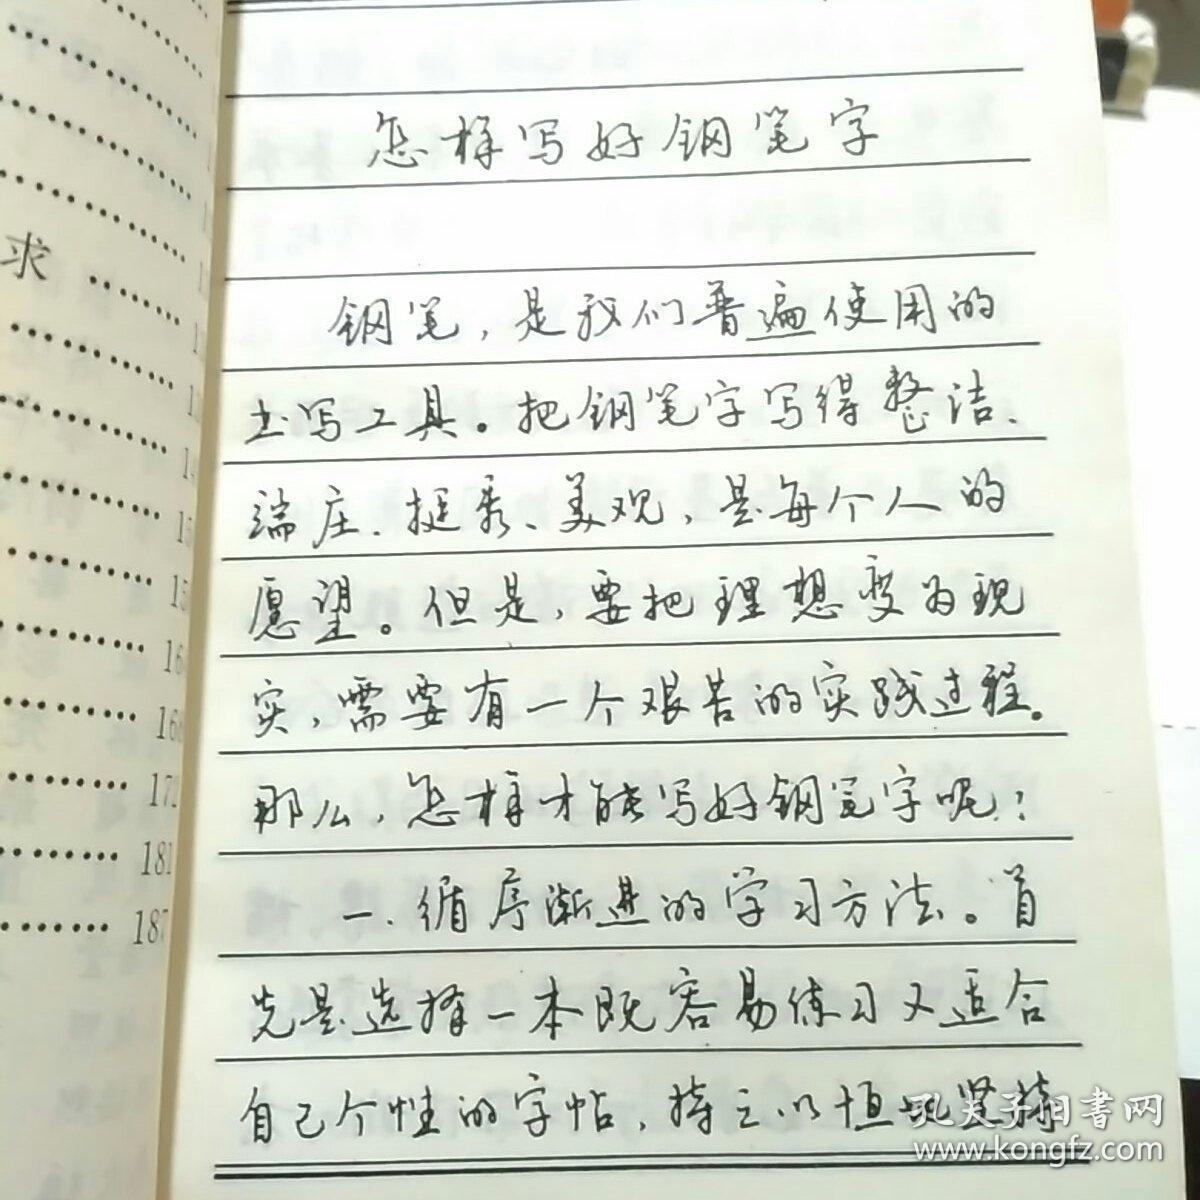 怎样写好钢笔字
钢笔,是我们普遍使用的
书写工具。把钢笔字写得整洁、
端庄、挺秀、美观,是每个人的
愿望。但是,要把理想变为现
实,需要有一个艰苦的实践过程。
那么,怎样才能写好钢笔字呢?
一、循序渐进的学习方法。首
先是选择一本既容易练习又适合
自己个性的字帖,持之以恒地坚持
求
14
15
15
16
168
172
181
187
孔夫子旧书网
www.kongfz.com